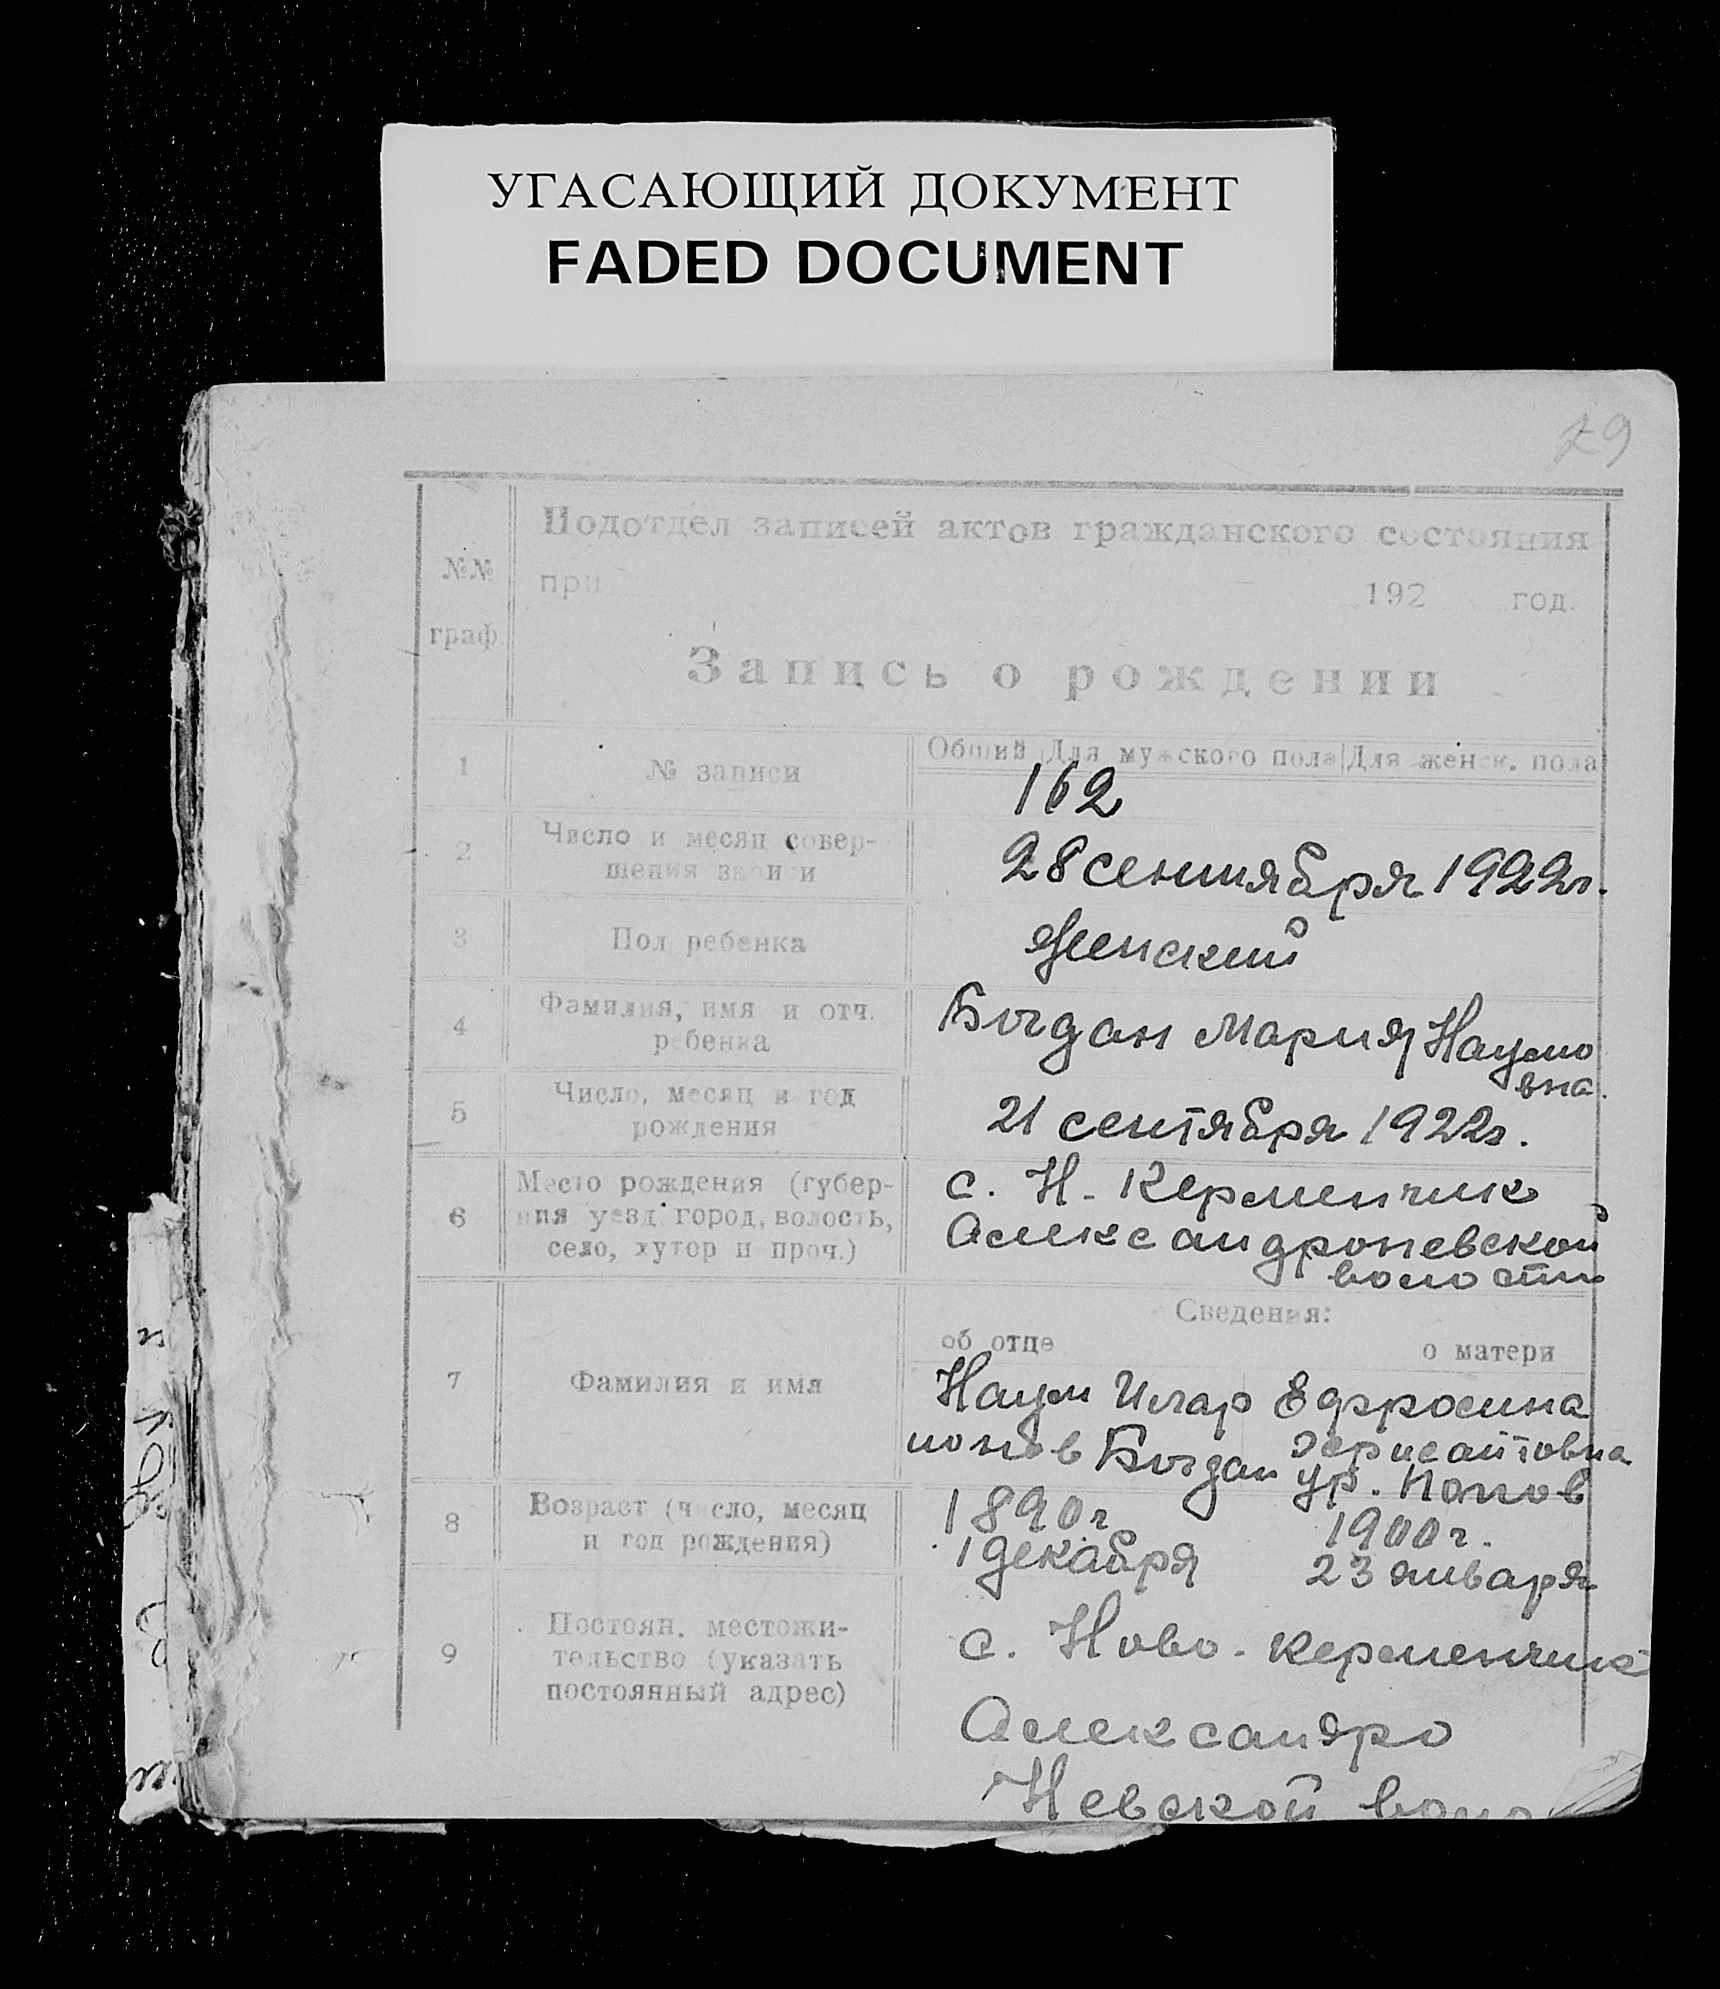 УГАСАЮЩИЙ ДОКУМЕНТ
FADED DOCUMENT
29
№№ граф.
Подотдел записей актов гражданского состояния
при 192 год.
Запись о рождении
1 № записи
Общий Для мужского пола Для женск. пола
162
2 Число и месяц совер-
шения записи
28 сентября 1922г.
3 Пол ребенка
женский
4 Фамилия, имя и отч.
ребенка
Богдан Мария Наумо
вна.
5 Число, месяц и год
рождения
21 сентября 1922г.
6 Место рождения (губер-
ния уезд город, волость,
село, хутор и проч.)
с. Н-Керменчик
Александроневской
волости
Сведения:
об отце о матери
7 Фамилия и имя
Наум Илар Ефросина
ионов Богдан
ур. Попов
8 Возраст (число, месяц
и год рождения)
1890г 1900г.
1 декабря 23 января
9 Постоян. местожи-
тельство (указать
постоянный адрес)
с. Ново-Керменчик
Александро
Невской воло